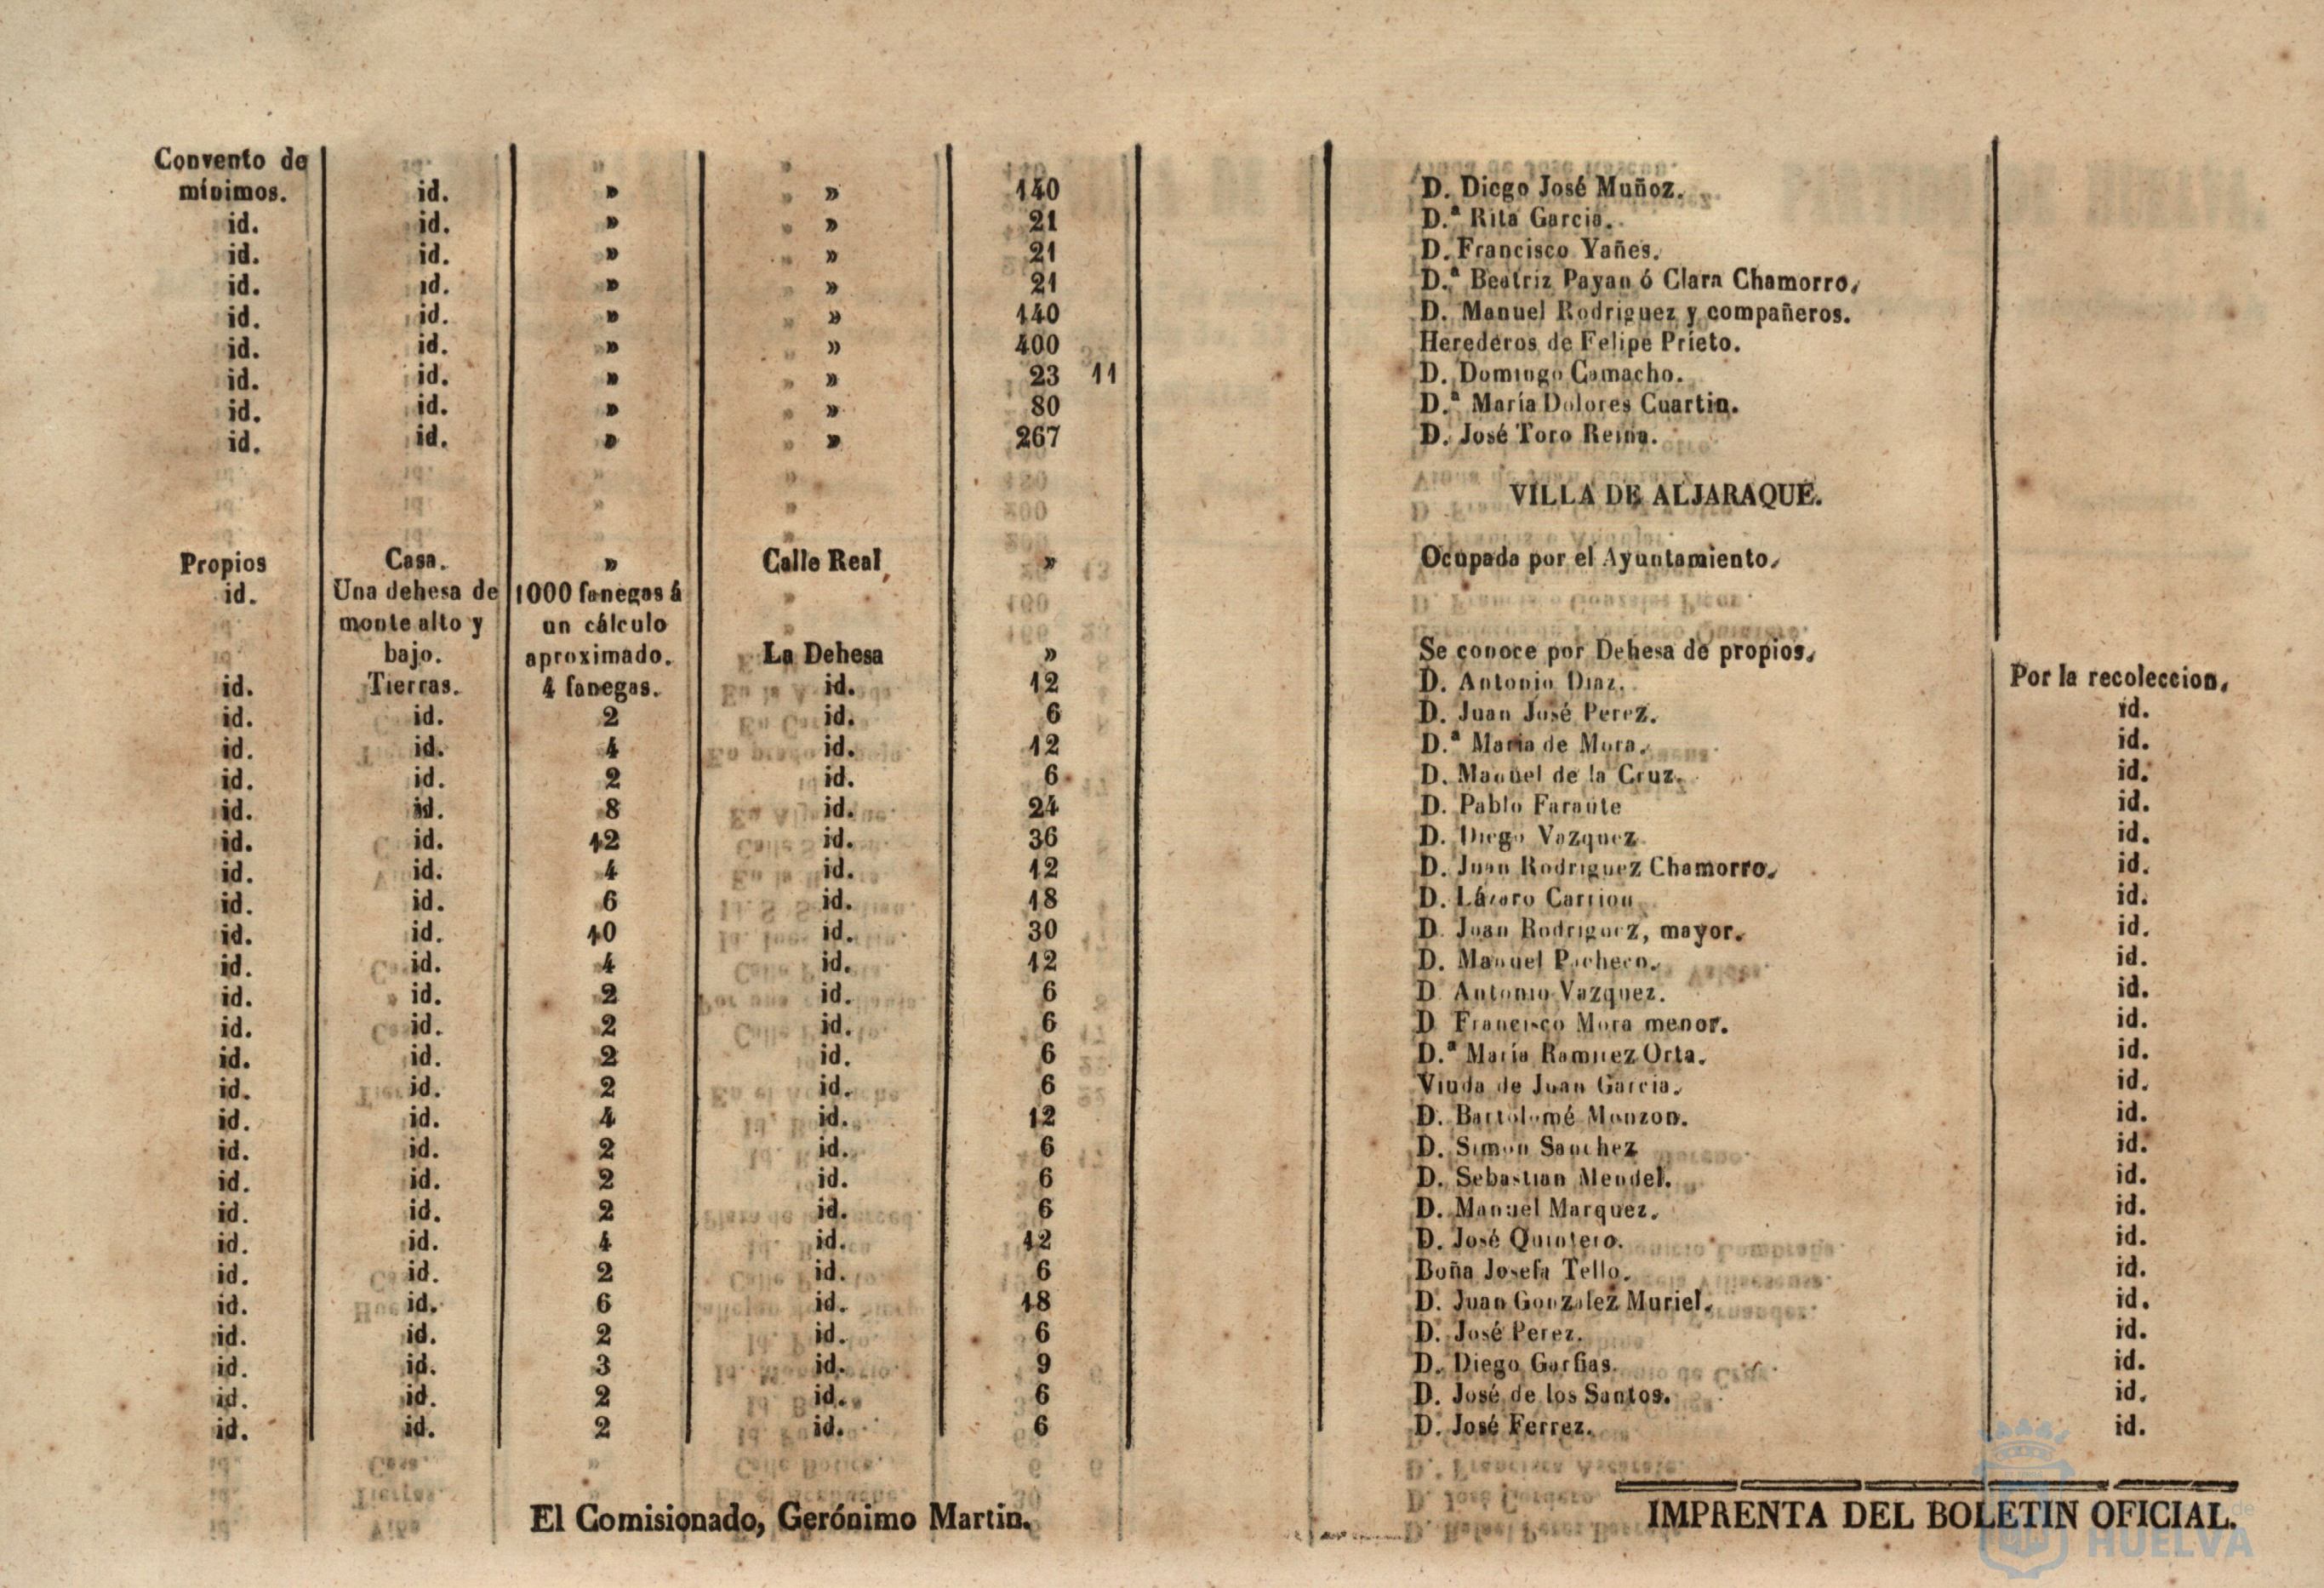 Convento de
mínimos. id. » » 140 D. Diego José Muñoz.
id. id. » » 21 D.ª Rita Garcia.
id. id. » » 21 D. Francisco Yañes.
id. id. » » 21 D.ª Beatriz Payan ó Clara Chamorro.
id. id. » » 140 D. Manuel Rodriguez y compañeros.
id. id. » » 400 Herederos de Felipe Prieto.
id. id. » » 23 11 D. Domingo Camacho.
id. id. » » 80 D.ª María Dolores Cuartin.
id. id. » » 267 D. José Toro Reina.
VILLA DE ALJARAQUE.
Propios Casa. » Calle Real » Ocupada por el Ayuntamiento.
id. Una dehesa de 1000 fanegas á
monte alto y un cálculo
bajo. aproximado. La Dehesa » Se conoce por Dehesa de propios.
id. Tierras. 4 fanegas. id. 12 D. Antonio Diaz. Por la recoleccion.
id. id. 2 id. 6 D. Juan José Perez. id.
id. id. 4 id. 12 D.ª Maria de Mora. id.
id. id. 2 id. 6 D. Manuel de la Cruz. id.
id. id. 8 id. 24 D. Pablo Faraute id.
id. id. 12 id. 36 D. Diego Vazquez id.
id. id. 4 id. 12 D. Juan Rodriguez Chamorro. id.
id. id. 6 id. 18 D. Lázaro Carrion id.
id. id. 10 id. 30 D. Juan Rodriguez, mayor. id.
id. id. 4 id. 12 D. Manuel Pacheco. id.
id. id. 2 id. 6 D. Antonio Vazquez. id.
id. id. 2 id. 6 D. Francisco Mora menor. id.
id. id. 2 id. 6 D.ª María Ramirez Orta. id.
id. id. 2 id. 6 Viuda de Juan Garcia. id.
id. id. 4 id. 12 D. Bartolomé Monzon. id.
id. id. 2 id. 6 D. Simon Sanchez id.
id. id. 2 id. 6 D. Sebastian Mendel. id.
id. id. 2 id. 6 D. Manuel Marquez. id.
id. id. 4 id. 12 D. José Quintero. id.
id. id. 2 id. 6 Doña Josefa Tello. id.
id. id. 6 id. 18 D. Juan Gonzalez Muriel. id.
id. id. 2 id. 6 D. José Perez. id.
id. id. 3 id. 9 D. Diego Garfias. id.
id. id. 2 id. 6 D. José de los Santos. id.
id. id. 2 id. 6 D. José Ferrez. id.
El Comisionado, Gerónimo Martin.
IMPRENTA DEL BOLETIN OFICIAL.
de
HUELVA